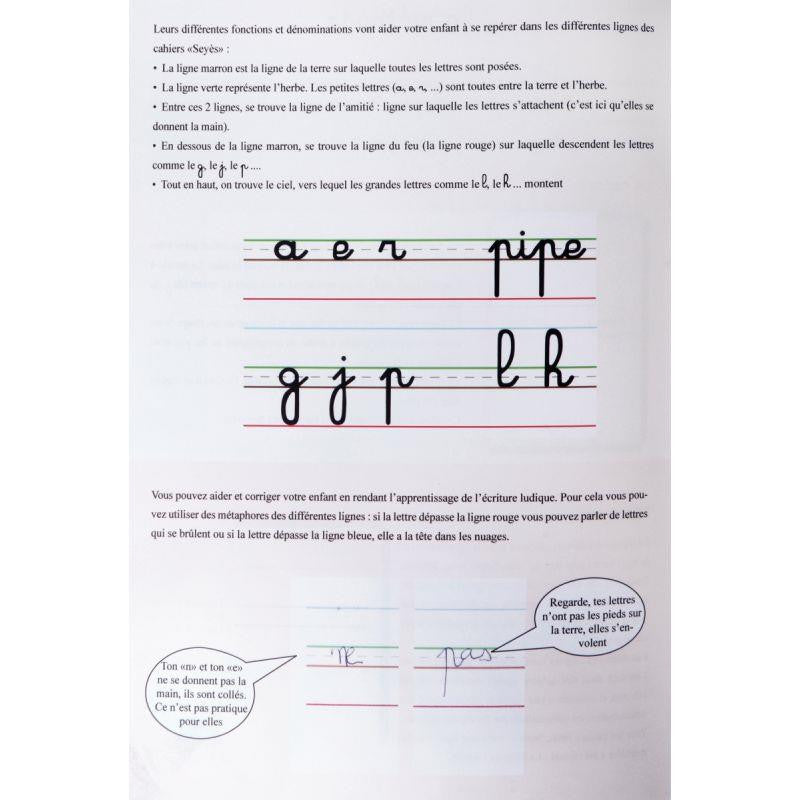 Leurs différentes fonctions et dénominations vont aider votre enfant à se repérer dans les différentes lignes des
cahiers «Seyès» :
• La ligne marron est la ligne de la terre sur laquelle toutes les lettres sont posées.
• La ligne verte représente l’herbe. Les petites lettres (a, e, r, ...) sont toutes entre la terre et l’herbe.
• Entre ces 2 lignes, se trouve la ligne de l’amitié : ligne sur laquelle les lettres s’attachent (c’est ici qu’elles se
donnent la main).
• En dessous de la ligne marron, se trouve la ligne du feu (la ligne rouge) sur laquelle descendent les lettres
comme le g, le j, le p ....
• Tout en haut, on trouve le ciel, vers lequel les grandes lettres comme le l, le h ... montent
a e r pipe
g j p l h
Vous pouvez aider et corriger votre enfant en rendant l’apprentissage de l’écriture ludique. Pour cela vous pou-
vez utiliser des métaphores des différentes lignes : si la lettre dépasse la ligne rouge vous pouvez parler de lettres
qui se brûlent ou si la lettre dépasse la ligne bleue, elle a la tête dans les nuages.
Regarde, tes lettres
n’ont pas les pieds sur
la terre, elles s’en-
volent
ne pas
Ton «n» et ton «e»
ne se donnent pas la
main, ils sont collés.
Ce n’est pas pratique
pour elles